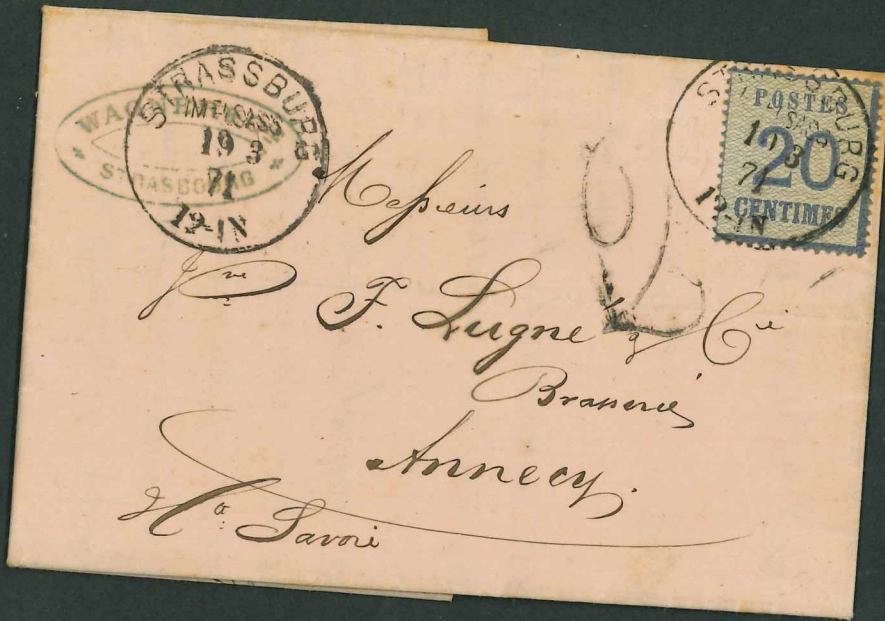 STRASSBURG
IM ELSASS
19 3
71
12-1N
WAGNER
STRASBOURG
STRASSBURG
19 3
71
12-1N
POSTES
20
CENTIMES
2
Messieurs
F. Lugne & Cie
Brasserie
Annecy.
Hte Savoie